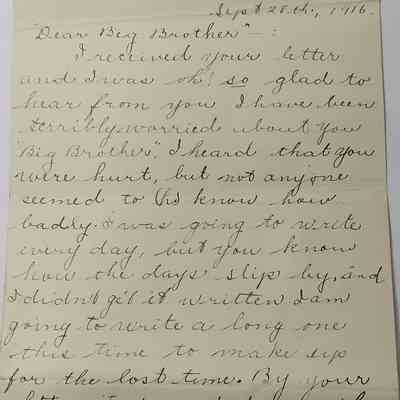 Sept 28th., 1916.
"Dear Big Brother" — :
I received your letter
and I was oh! so glad to
hear from you I have been
terribly worried about you
"Big Brother", I heard that you
were hurt, but not anyone
seemed to know how
badly. I was going to write
every day, but you know
how the days slip by, and
I didn't git it written I am
going to write a long one
this time to make up
for the lost time. By your